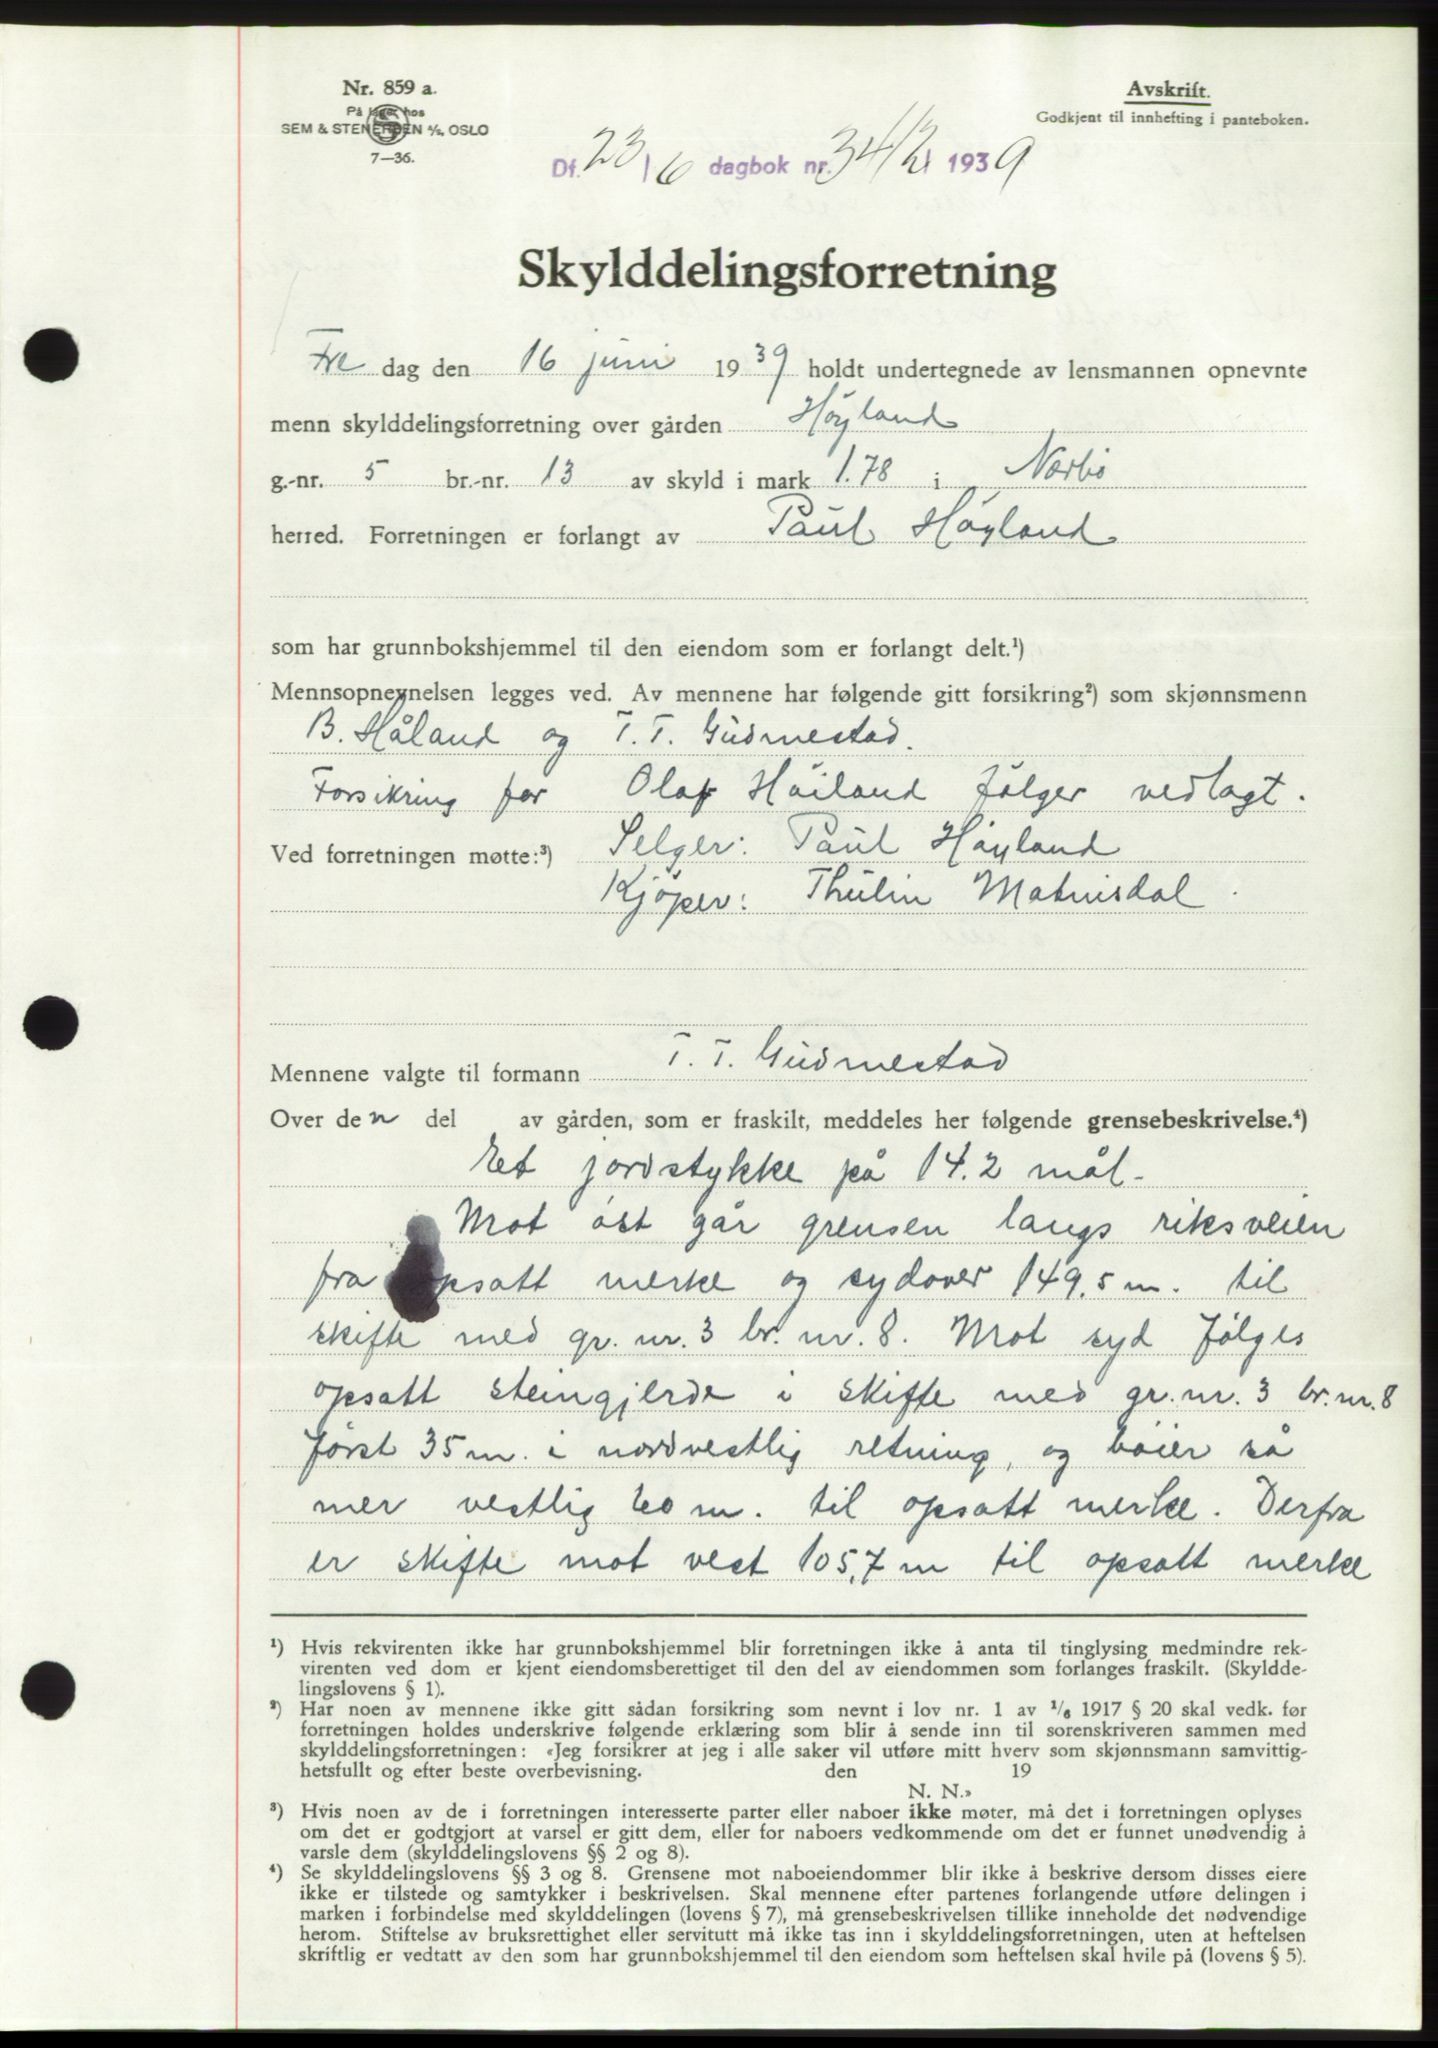 Nr. 859 a.
På lager hos
SEM & STENERSEN A/S, OSLO
7—36.
Avskrift.
Godkjent til innhefting i panteboken.
Df. 23/6 dagbok nr. 3412 1939
Skylddelingsforretning
Fre dag den 16 juni 1939 holdt undertegnede av lensmannen opnevnte
menn skylddelingsforretning over gården Höyland
g.-nr. 5 br.-nr. 13 av skyld i mark 1.78 i Nærbö
herred. Forretningen er forlangt av Paul Höyland
som har grunnbokshjemmel til den eiendom som er forlangt delt.¹)
Mennsopnevnelsen legges ved. Av mennene har følgende gitt forsikring²) som skjønnsmenn
B. Håland og T. T. Gudmestad.
Forsikring for Olaf Höiland fölger vedlagt.
Ved forretningen møtte:³) Selger: Paul Höyland
Kjöper: Thulin Matnisdal.
Mennene valgte til formann T. T. Gudmestad
Over den del av gården, som er fraskilt, meddeles her følgende grensebeskrivelse.⁴)
Et jordstykke på 14.2 mål.
Mot öst går grensen langs riksveien
fra opsatt merke og sydover 149,5 m. til
skifte med gr. nr. 3 br. nr. 8. Mot syd fölges
opsatt steingjerde i skifte med gr. nr. 3 br. nr. 8
först 35 m. i nordvestlig retning, og böier så
mer vestlig 20 m. til opsatt merke. Derfra
er skifte mot vest 105,7 m til opsatt merke
¹) Hvis rekvirenten ikke har grunnbokshjemmel blir forretningen ikke å anta til tinglysing medmindre rek-
virenten ved dom er kjent eiendomsberettiget til den del av eiendommen som forlanges fraskilt. (Skyldde-
lingslovens § 1).
²) Har noen av mennene ikke gitt sådan forsikring som nevnt i lov nr. 1 av ¹/₆ 1917 § 20 skal vedk. før
forretningen holdes underskrive følgende erklæring som blir å sende inn til sorenskriveren sammen med
skylddelingsforretningen: «Jeg forsikrer at jeg i alle saker vil utføre mitt hverv som skjønnsmann samvittig-
hetsfullt og efter beste overbevisning. den 19
N. N.»
³) Hvis noen av de i forretningen interesserte parter eller naboer ikke møter, må det i forretningen oplyses
om det er godtgjort at varsel er gitt dem, eller for naboers vedkommende om det er funnet unødvendig å
varsle dem (skylddelingslovens §§ 2 og 8).
⁴) Se skylddelingslovens §§ 3 og 8. Grensene mot naboeiendommer blir ikke å beskrive dersom disses eiere
ikke er tilstede og samtykker i beskrivelsen. Skal mennene efter partenes forlangende utføre delingen i
marken i forbindelse med skylddelingen (lovens § 7), må grensebeskrivelsen tillike inneholde det nødvendige
herom. Stiftelse av bruksrettighet eller servitutt må ikke tas inn i skylddelingsforretningen, uten at heftelsen
skriftlig er vedtatt av den som har grunnbokshjemmel til den eiendom som heftelsen skal hvile på (lovens § 5).